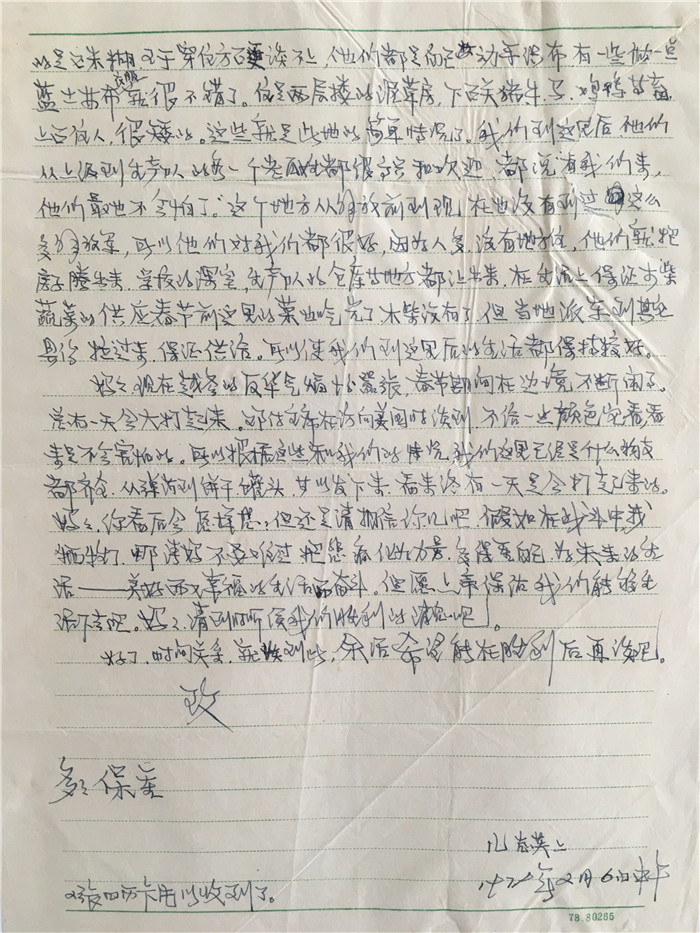 的是玉米糊。至于穿住方面更谈不上,他们都是自己动手织布有一些做一点
蓝土布衣服就很不错了。住是两层楼的泥草房,下面关猪牛马、鸡鸭等畜
上面住人,很矮的。这些就是此地的简单情况了。我们到这里后,他们
从上级到生产队的每一个老百姓都很高兴和欢迎,都说"有我们来,
他们最也不会怕了。"这个地方从解放前到现在也没有到过这么
多的解放军,所以他们对我们都很好,因为人多,没有地方住,他们就把
房子腾出来,学校的课堂,生产队的仓库等地方都让出来,在生活上保证米柴
蔬菜的供应春节前这里的菜也吃完了木柴没有了,但当地派车到其它
县份拉过来,保证供给。所以使我们到这里后的生活都保持较好。
妈妈现在越南的反华气焰十分嚣张,春节期间在边境不断闹事。
总有一天会大打起来。邓付主席在访问美国时谈到,不给一些颜色它看看
来是不会害怕的。所以根据这些和我们的情况,我们这里已经是什么物支
都齐全,从弹药到饼干罐头,可以发下来,看来终有一天是会打起来的。
妈妈,你看后会怎样想,但还是请相信你儿吧,假如在战斗中我
牺牲了,那请妈不要难过,把悲痛化为力量,多保重自己,为未来的生
活——美好而又幸福的生活而奋斗。但愿上帝保佑我们能够生
活下去吧。妈妈,请到时听侯我们的胜利的消息吧。
好了,时间关系,就谈到此,余后希望能在胜利后再谈吧。
致
多多保重
儿 英上
1979年2月6日中午
2张四方卡用以收到了。
78.80265